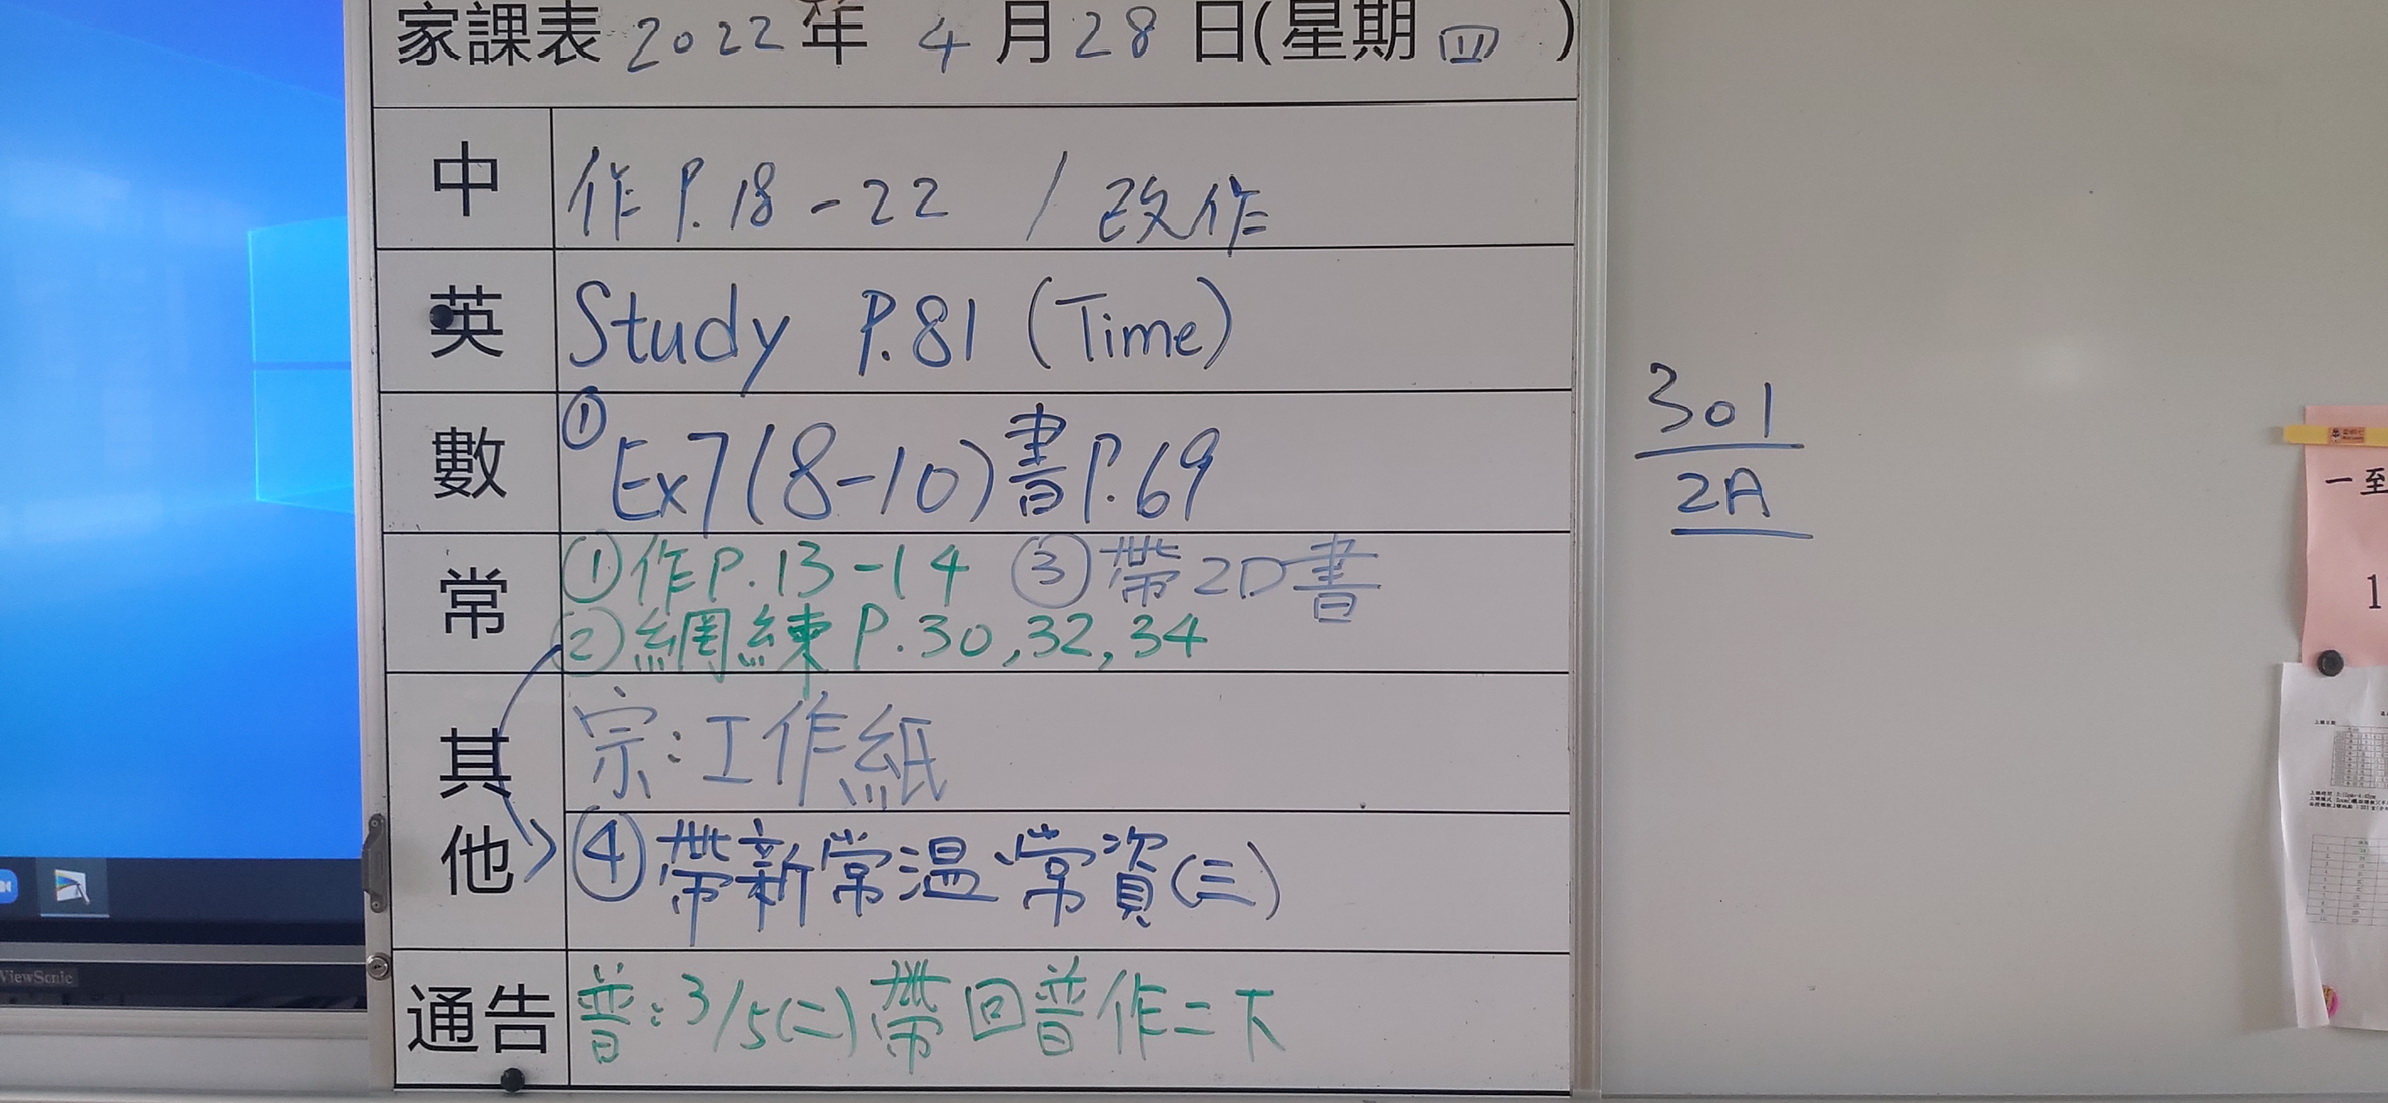 家課表 2022 年 4 月 28 日(星期四)
中 作 P.18-22 / 改作
英 Study P.81 (Time)
數 ① Ex7(8-10)書P.69
常 ①作P.13-14 ③帶2D書
②網練P.30,32,34
其他 宗:工作紙
④帶新常溫、常資(三)
通告 普:3/5(二)帶回普作二下
301
2A
一至
1
ViewSonic